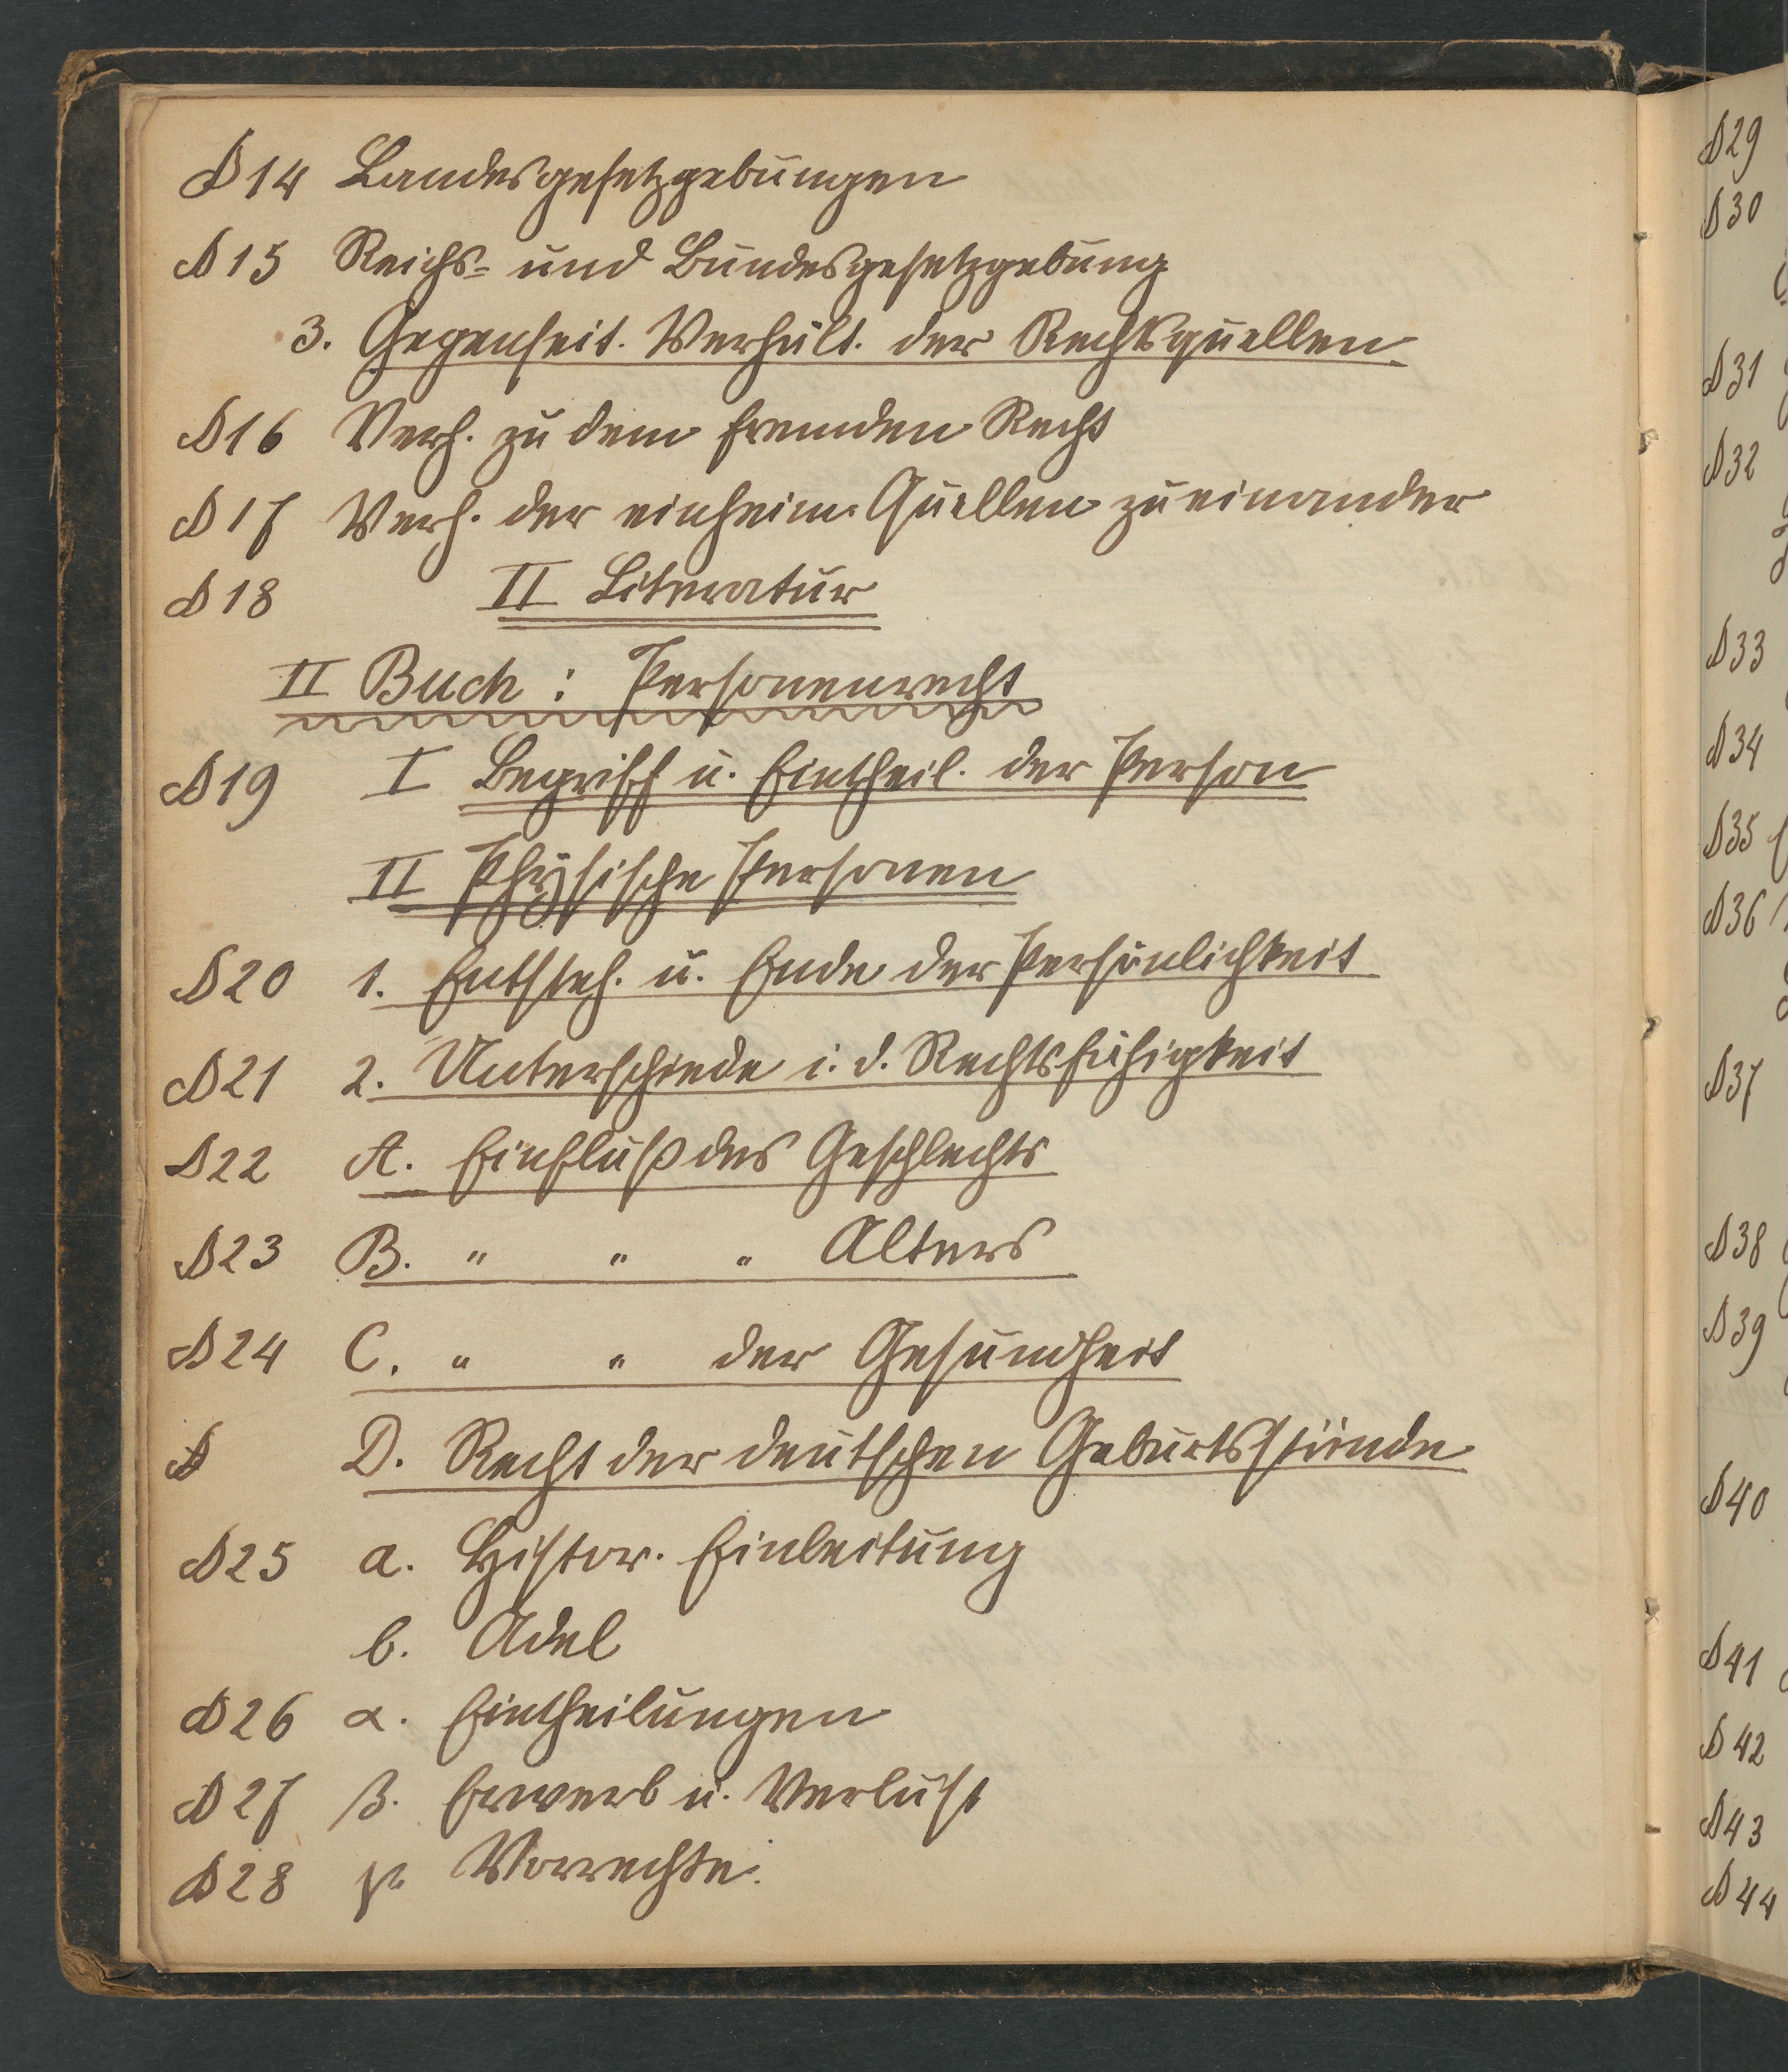 § 14 Landesgesetzgebungen
§ 15 Reichs- und Bundesgesetzgebung
3. Gegenseit. Verhält. der Rechtsquellen
§ 16 Verh. zu dem fremden Recht
§ 17 Verh. der einheim. Quellen zu einander
§ 18 II Literatur
II Buch : Personenrecht
§ 19 I Begriff u. Eintheil. der Person
II Physische Personen
§ 20 1. Entsteh. u. Ende der Persönlichkeit
§ 21 2. Unterschiede i. d. Rechtsfähigkeit
§ 22 A. Einfluß des Geschlechts
§ 23 B. " " " Alters
§ 24 C. " " der Gesundheit
§ D. Recht der deutschen Geburtsstände
§ 25 a. Histor. Einleitung
b. Adel
§ 26 α. Eintheilungen
§ 27 β. Erwerb u. Verlust
§ 28 γ. Vorrechte.
§ 29
§ 30
§ 31
§ 32
§ 33
§ 34
§ 35
§ 36
§ 37
§ 38
§ 39
§ 40
§ 41
§ 42
§ 43
§ 44